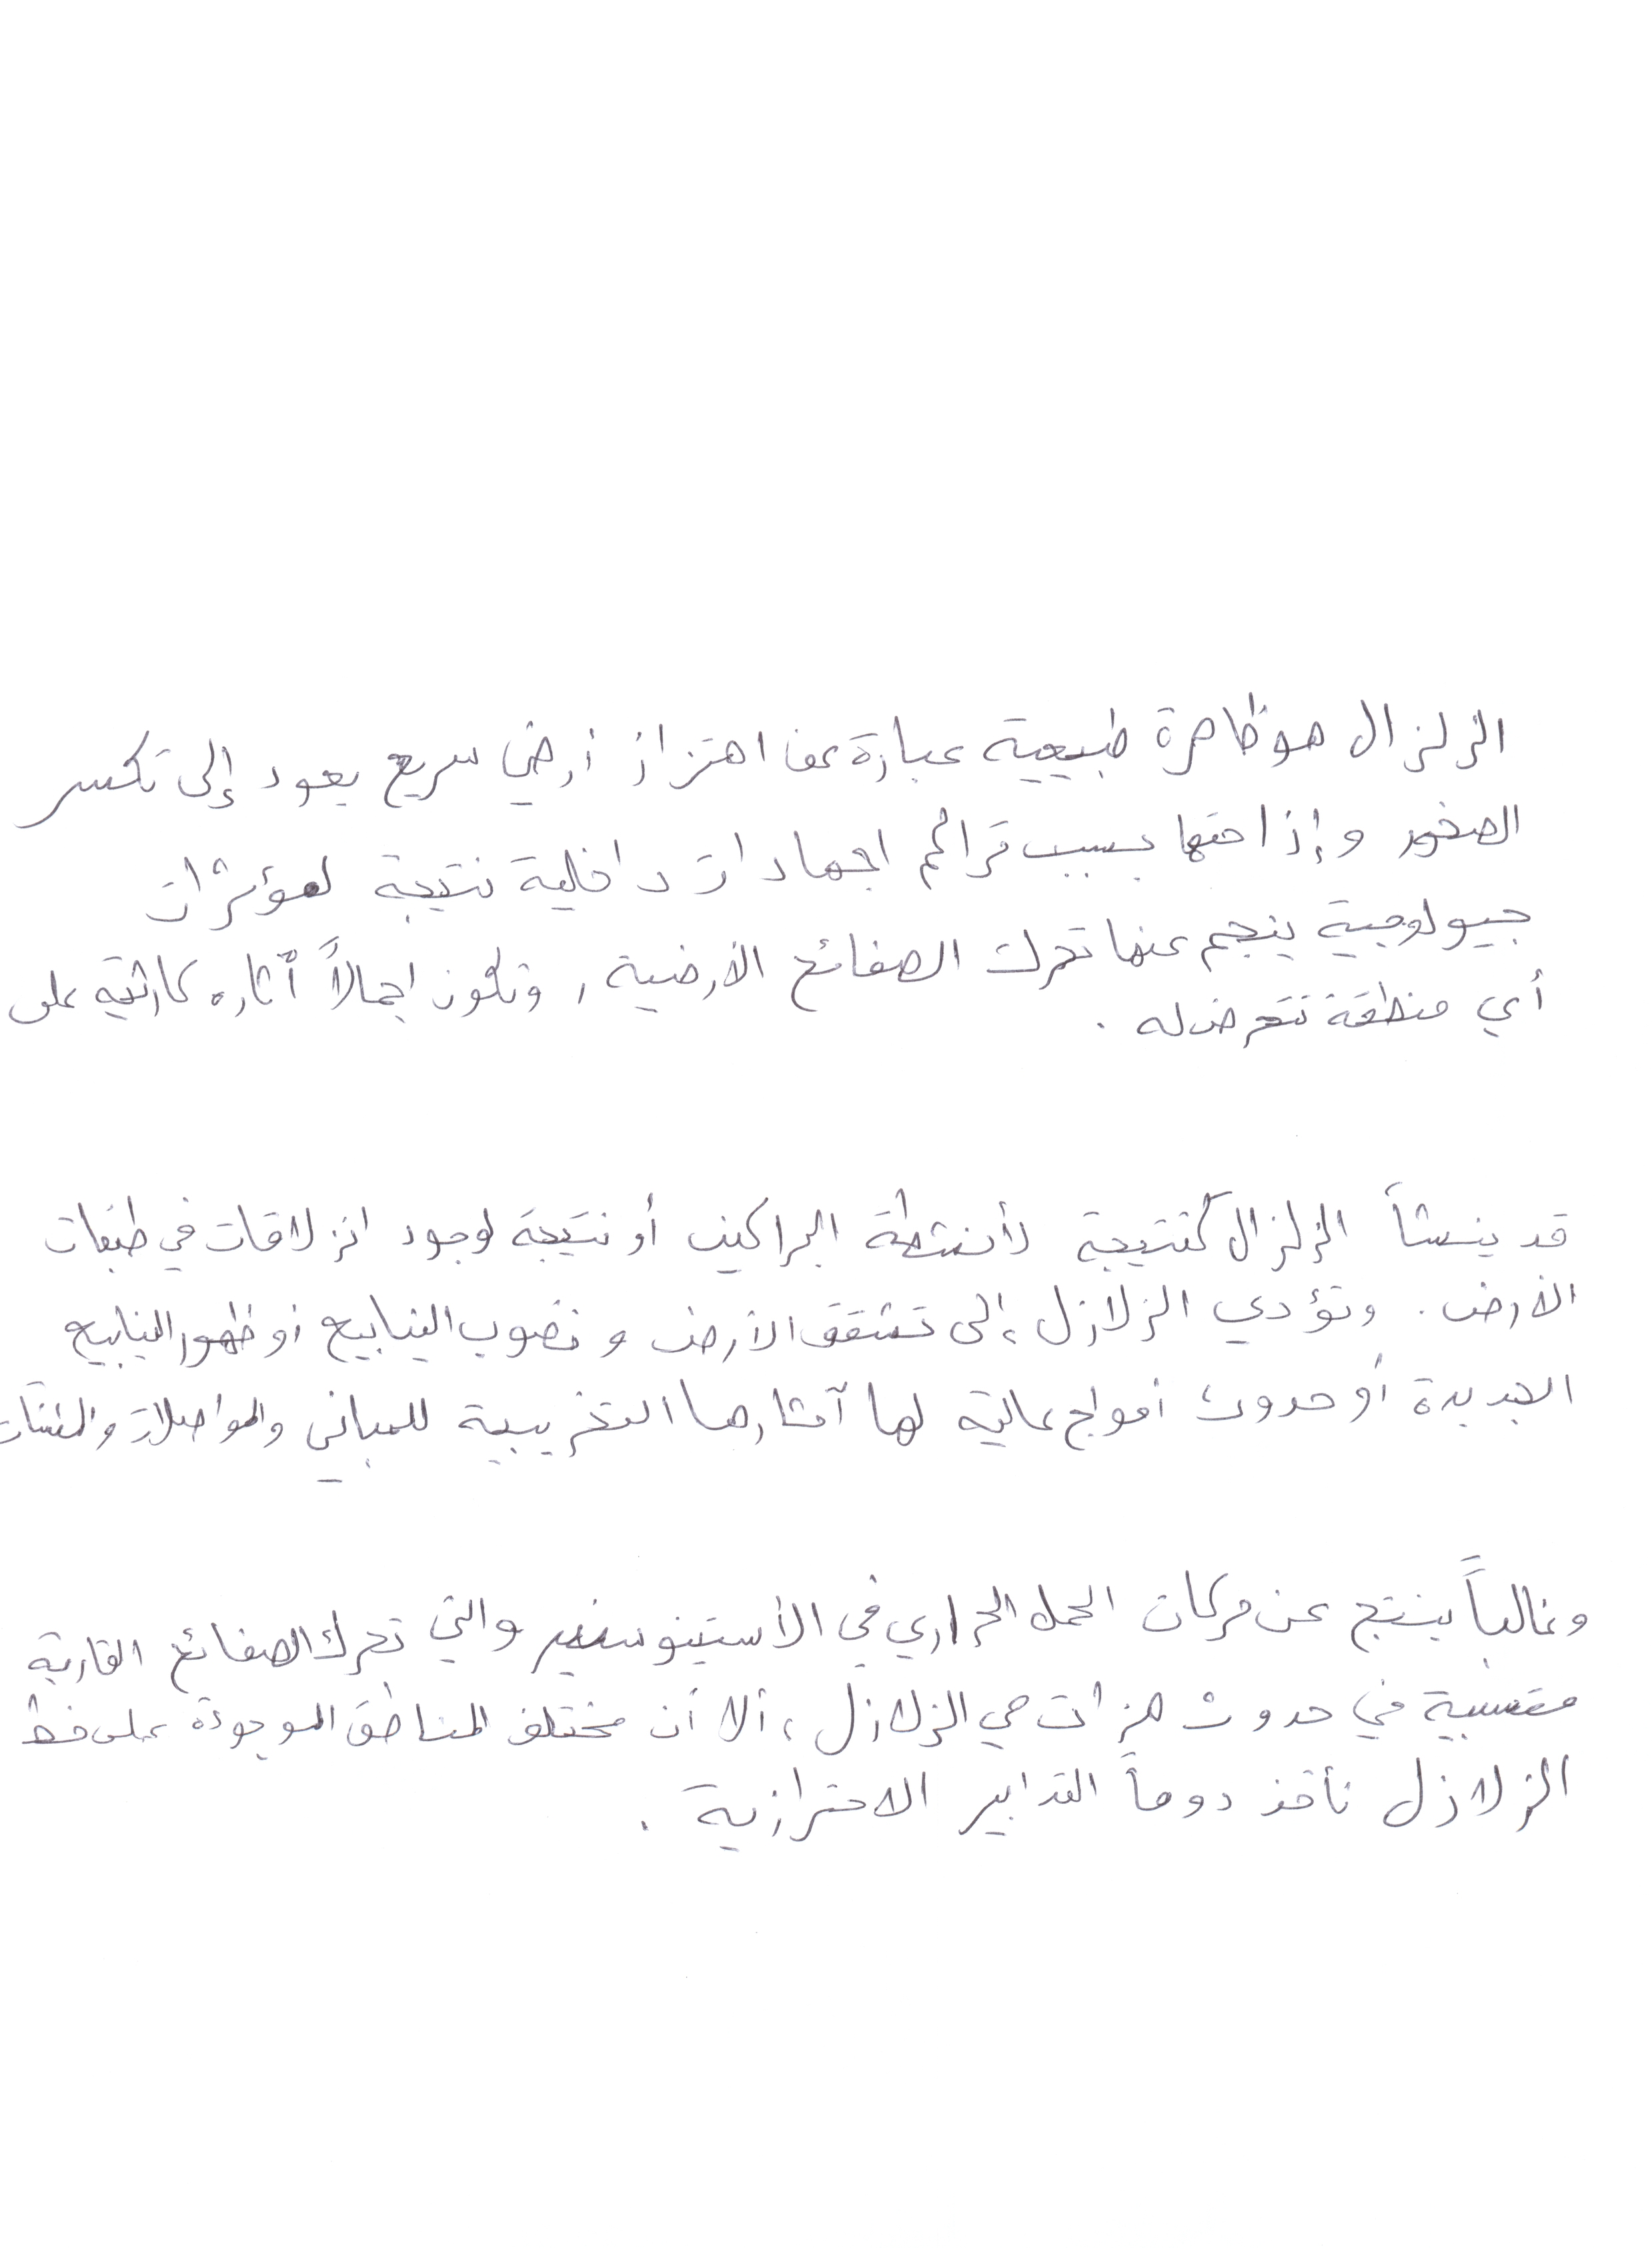 الزلزال هو ظاهرة طبيعية عبارة عن اهتزاز أرضي سريع يعود إلى تكسر
الصخور وإزاحتها بسبب تراكم اجهادات داخلية نتيجة لمؤثرات
جيولوجية ينجم عنها تحرك الصفائح الأرضية, وتكون اجمالاً آثاره كارثية على
أي منطقة تتعرض له .
قد ينشأ الزلزال كنتيجة لأنشطة البراكين أو نتيجة لوجود انزلاقات في طبقات
الأرض . وتؤدي الزلازل إلى تشقق الأرض و نضوب الينابيع أو ظهور الينابيع
الجديدة أو حدوث أمواج عالية لها آثارها التخريبية للمباني والمواصلات والمنشآت
وغالباً ينتج عن حركات الحمل الحراري في الأستينوسفير والتي تحرك الصفائح القارية
متسببة في حدوث هزات هي الزلازل ، ألا أن مختلف المناطق الموجودة على خط
الزلازل تأخذ دوماً التدابير الاحترازية .